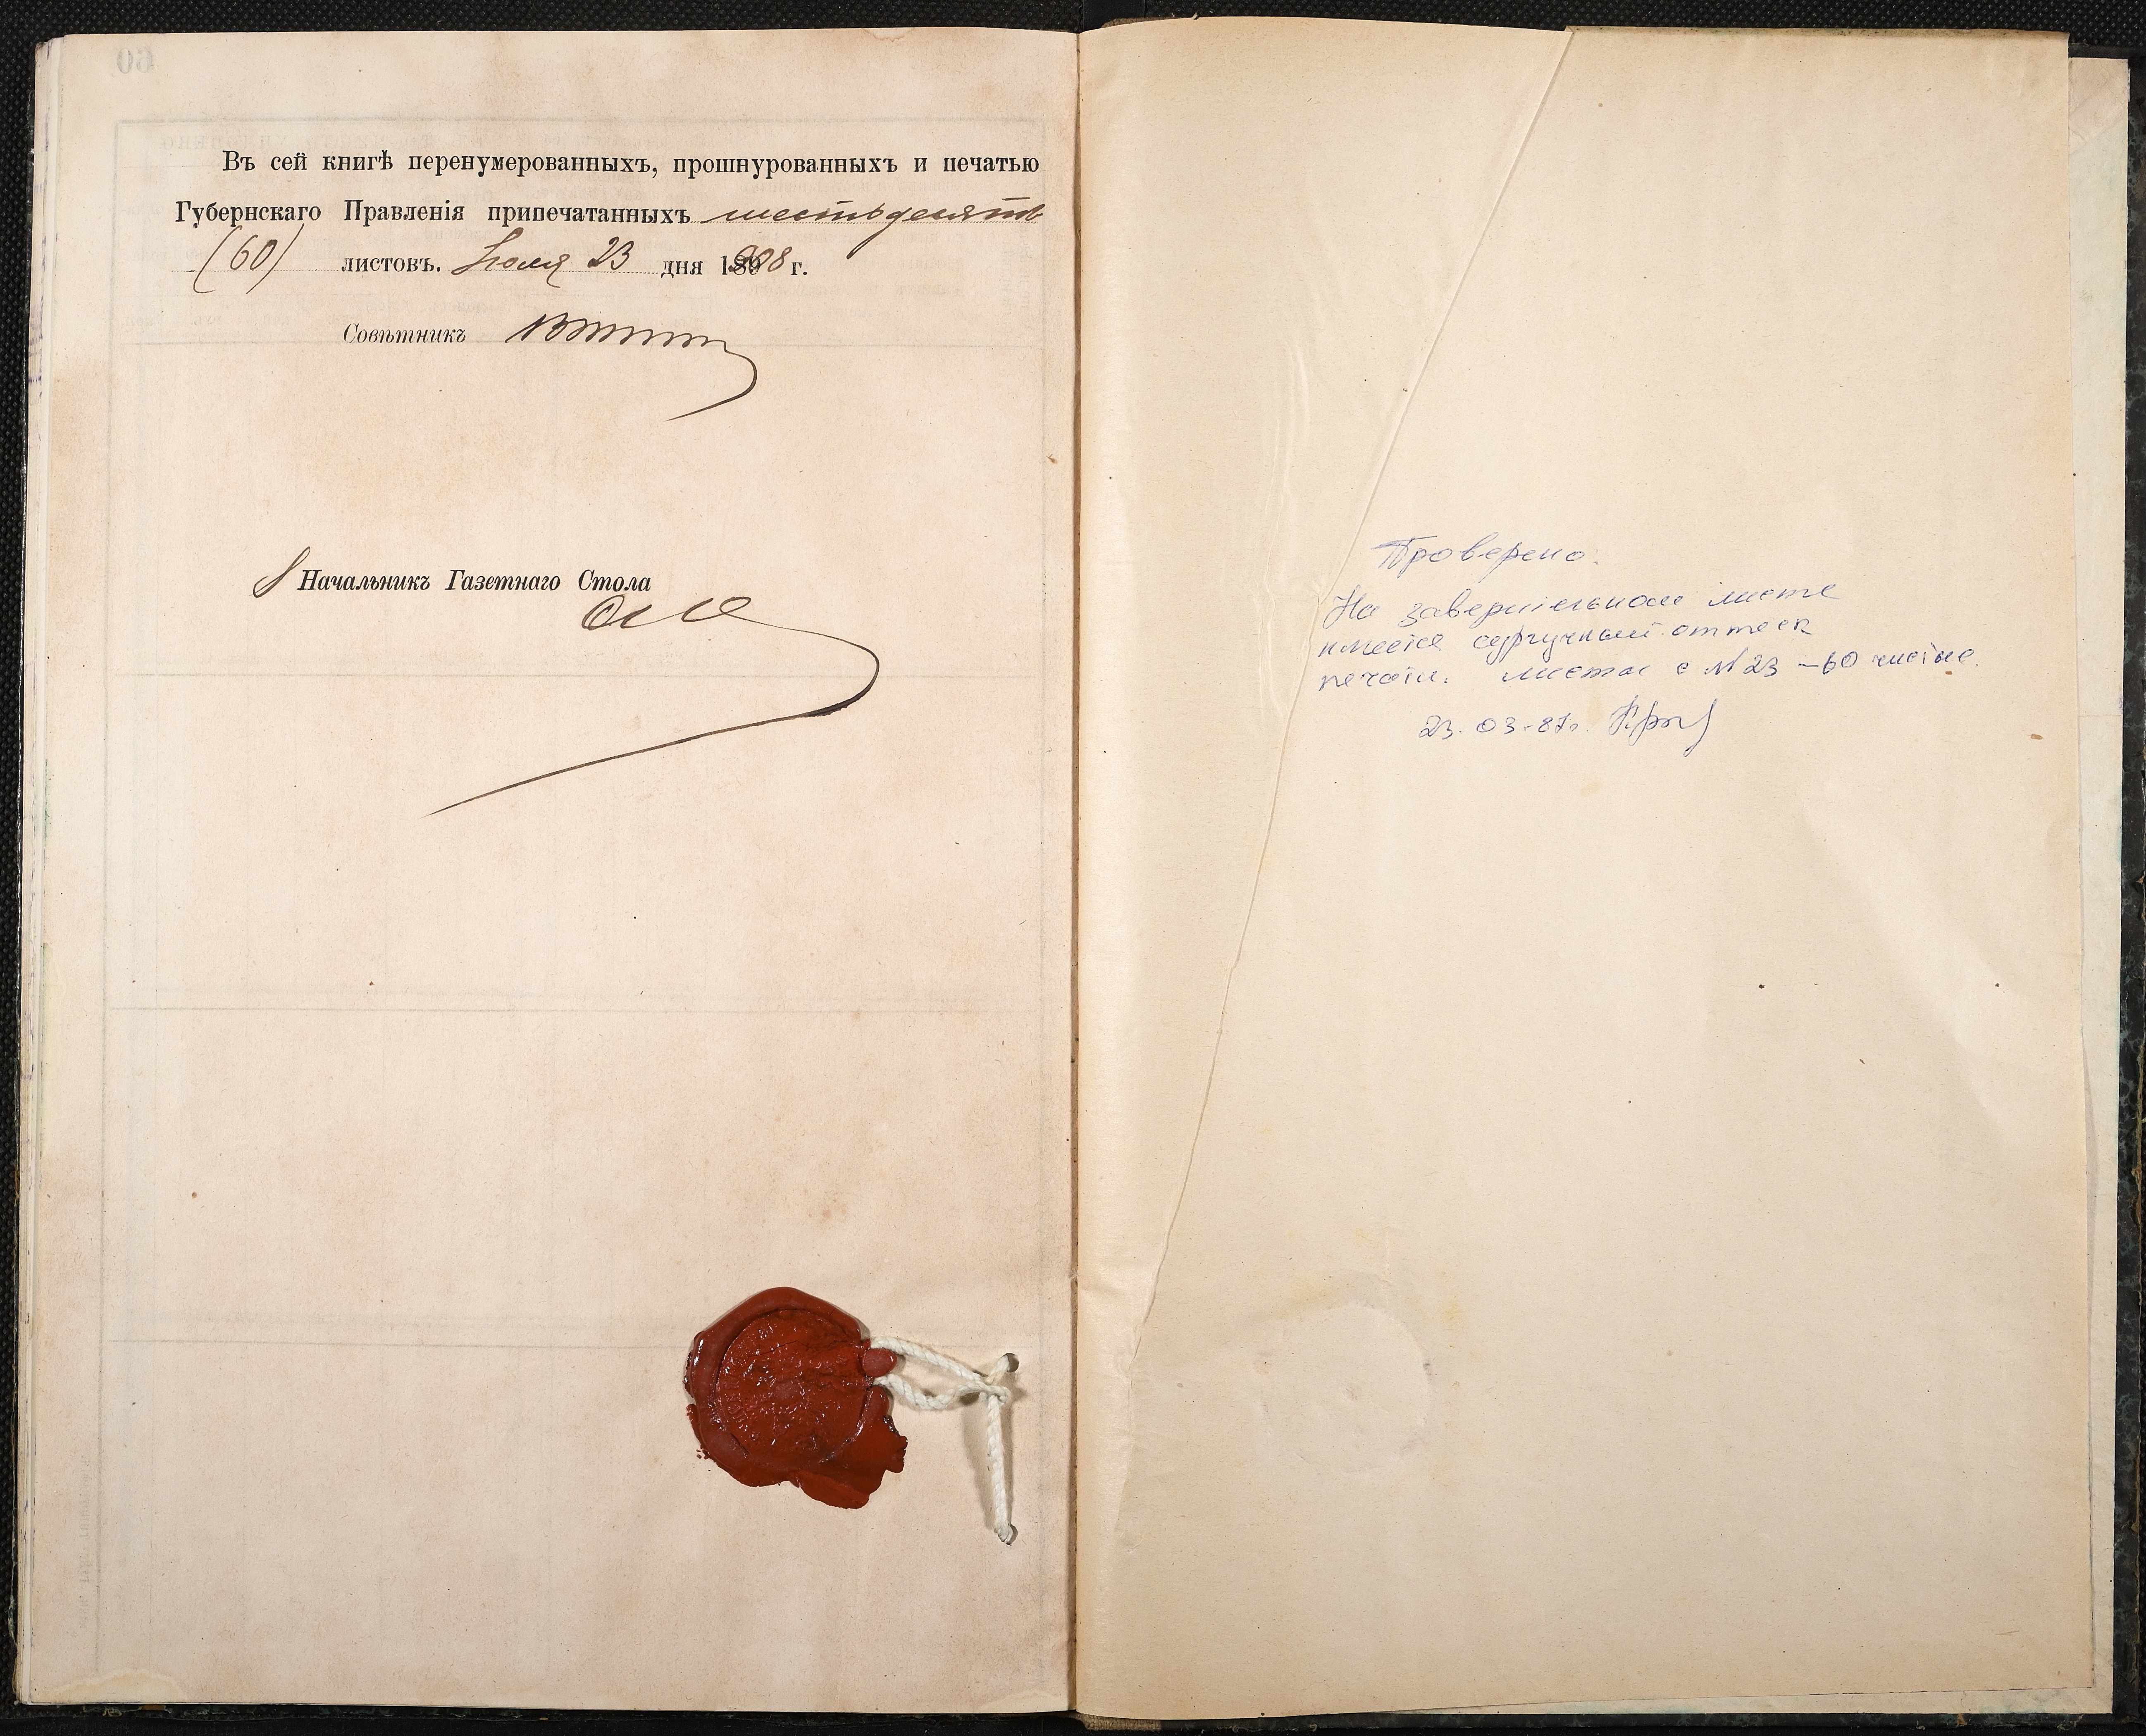 Въ сей книгѣ перенумерованныхъ, прошнурованныхъ и печатью
Губернскаго Правленія припечатанныхъ шестьдесятъ
(60) листовъ. Іюля 23 дня 1908 г.
Совѣтникъ
Начальникъ Газетнаго Стола
Проверено.
На заверительном листе
имеется сургучный оттиск
печати. листы с № 23 – 60 чистые.
23.03-87г.